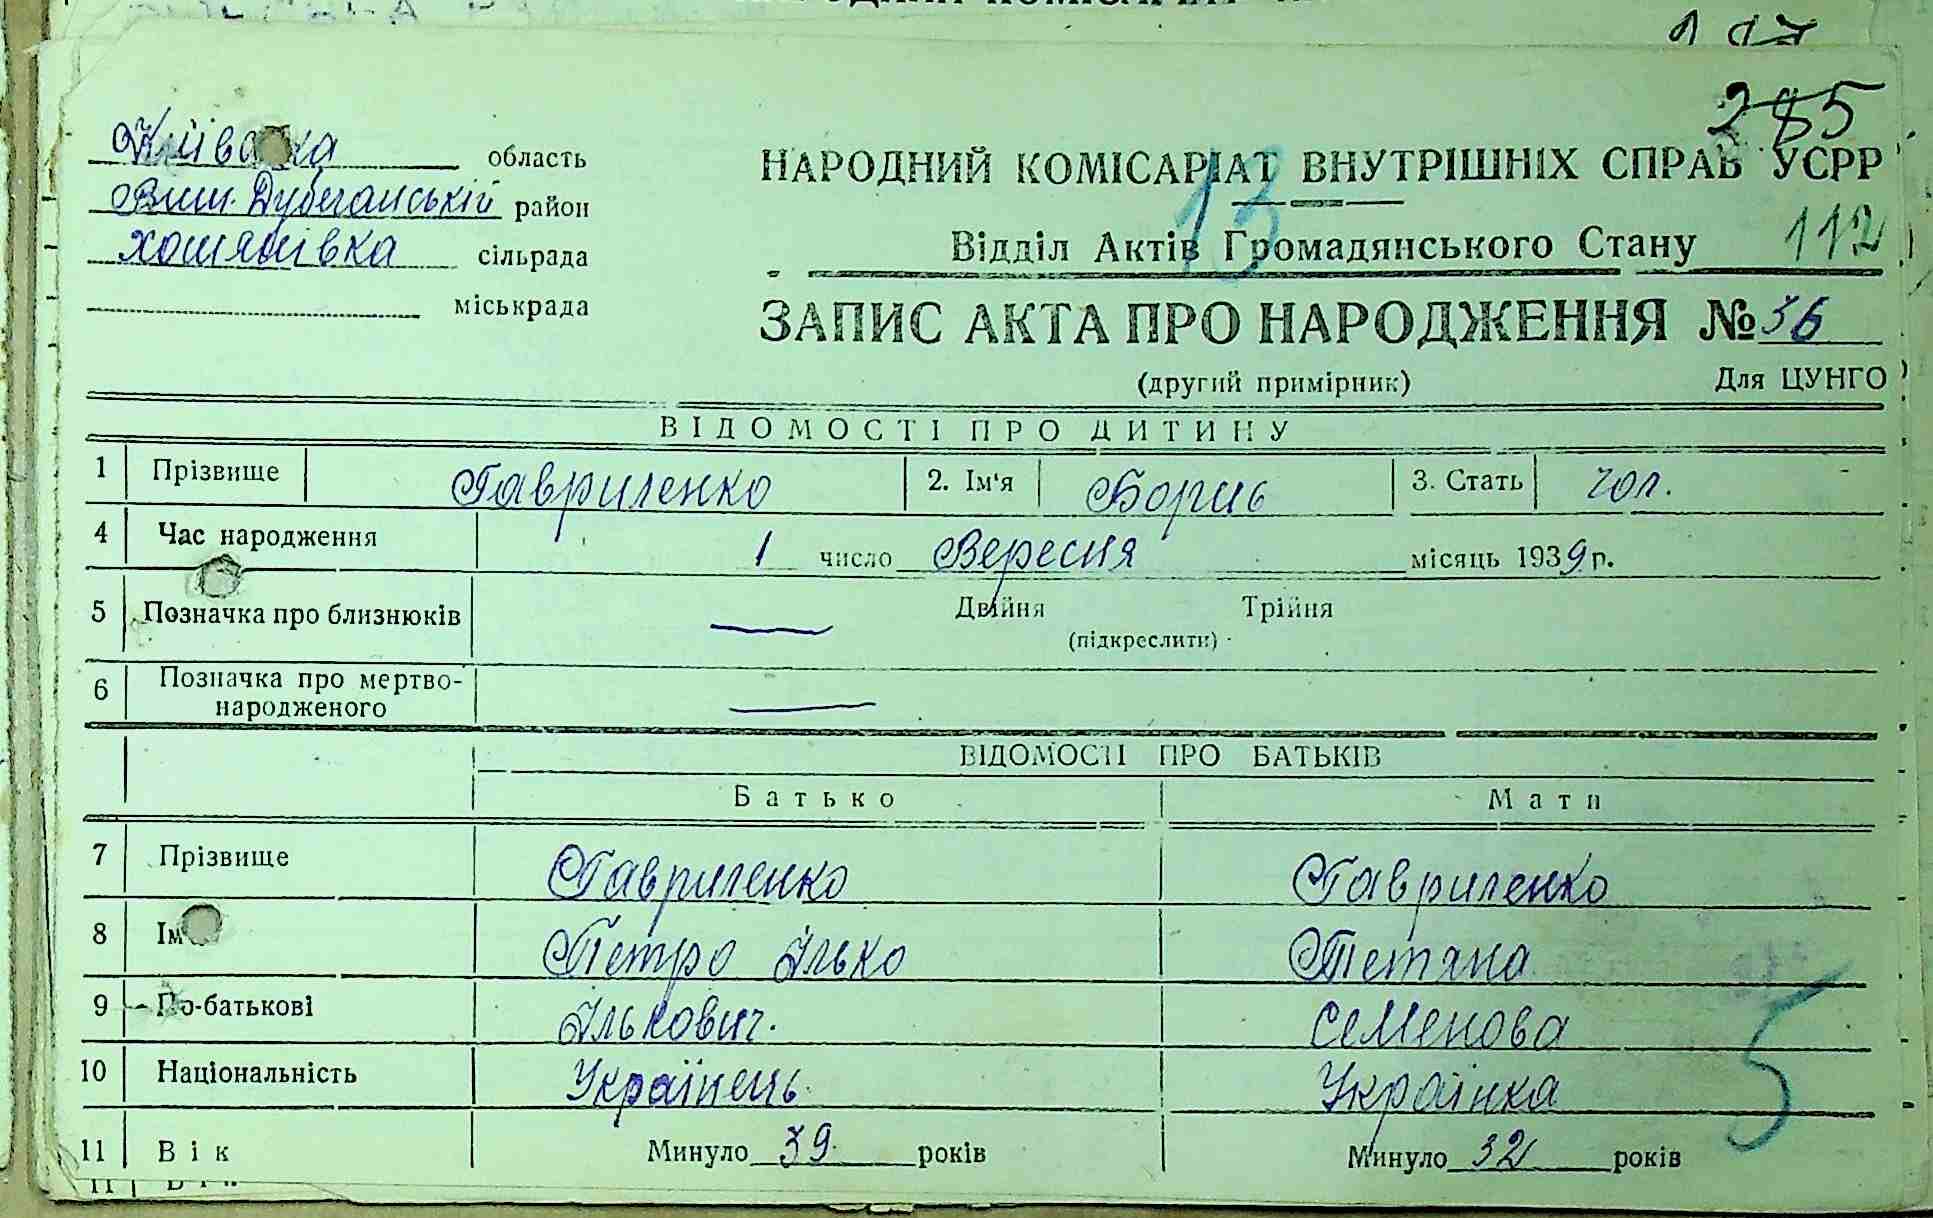 285
Київська область
Вищ. Дубечанській район
Хотянівка сільрада
міськрада
НАРОДНИЙ КОМІСАРІАТ ВНУТРІШНІХ СПРАВ УСРР
13
Відділ Актів Громадянського Стану
112
ЗАПИС АКТА ПРО НАРОДЖЕННЯ № 36
(другий примірник)
Для ЦУНГО
ВІДОМОСТІ ПРО ДИТИНУ
1 Прізвище Гавриленко 2. Ім'я Борис 3. Стать чол.
4 Час народження 1 число Вересня місяць 1939 р.
5 Позначка про близнюків — Двійня Трійня
(підкреслити)
6 Позначка про мертво-
народженого —
ВІДОМОСТІ ПРО БАТЬКІВ
Батько Мати
7 Прізвище Гавриленко Гавриленко
8 Ім'я Петро Ілько Тетяна
9 По-батькові Ількович. Семенова
10 Національність Українець. Українка
5
11 Вік Минуло 39 років Минуло 32 років